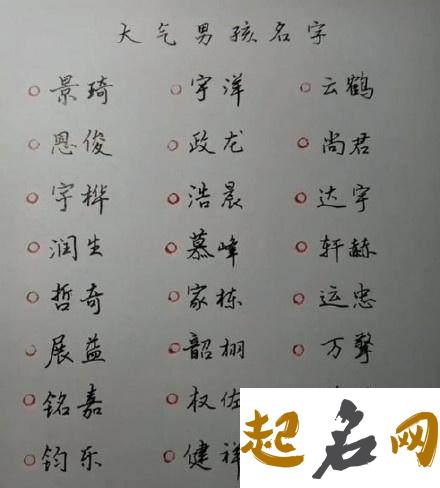 大气男孩名字
景琦 宇洋 云鹤
恩俊 政龙 尚君
宇桦 浩晨 达宇
润生 慕峰 轩赫
哲奇 家栋 运忠
展益 韶栩 万擎
铭嘉 权佐
钧乐 健祥
起名网